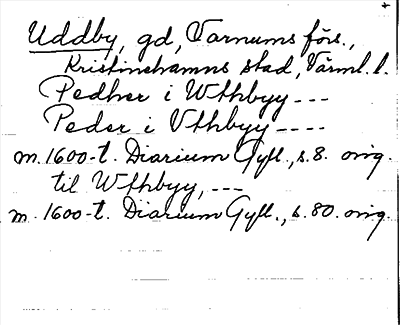 Uddby, gd, Varnums förs.,
Kristinehamns stad, Värml. l.
Pedher i Wthbyy ---
Peder i Vthbyy ----
m. 1600-t. Diarium Gyll., s. 8. orig.
til Wthbyy, ---
m. 1600-t. Diarium Gyll., s. 80. orig.